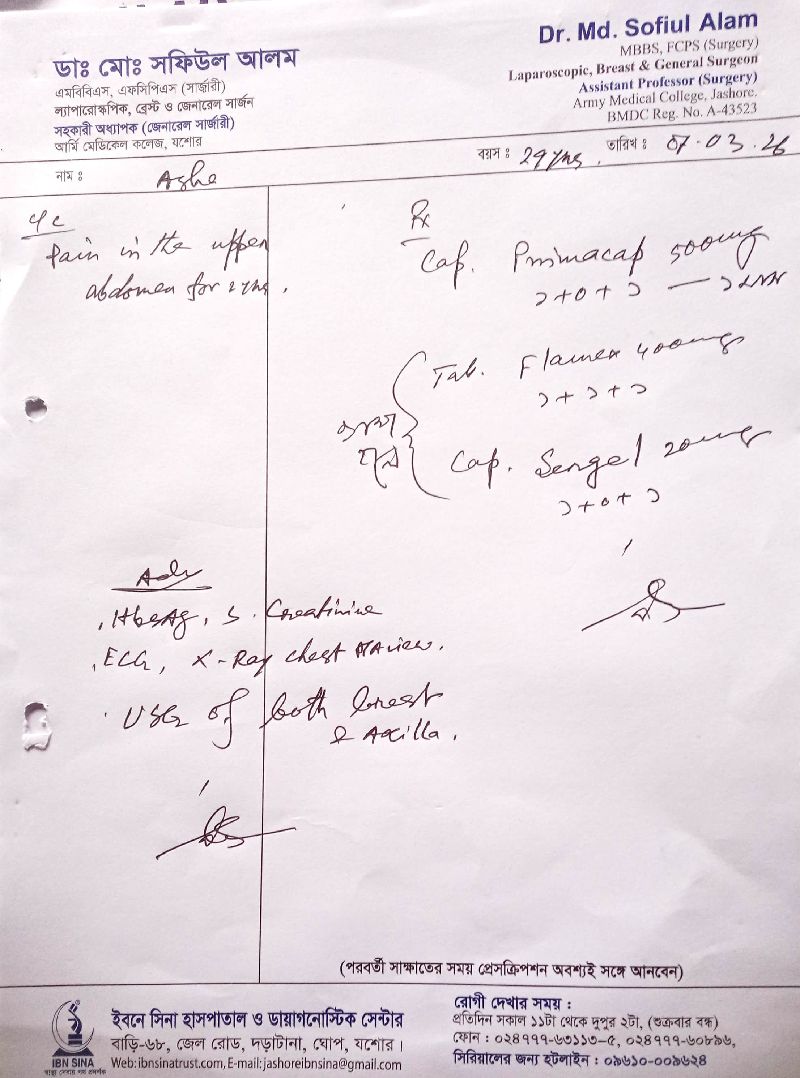 ডাঃ মোঃ সফিউল আলম
এমবিবিএস, এফসিপিএস (সার্জারী)
ল্যাপারোস্কপিক, ব্রেস্ট ও জেনারেল সার্জন
সহকারী অধ্যাপক (জেনারেল সার্জারী)
আর্মি মেডিকেল কলেজ, যশোর
Dr. Md. Sofiul Alam
MBBS, FCPS (Surgery)
Laparoscopic, Breast & General Surgeon
Assistant Professor (Surgery)
Army Medical College, Jashore.
BMDC Reg. No. A-43523
নাম : Asha
বয়স : 29 yrs.
তারিখ : 07-03.26
C/C
Pain in the upper
abdomen for 2 yrs.
Adv
HbsAg, S. Creatinine
ECG, X-Ray chest P/A view.
USG of both breast
& Axilla.
Rx
Cap. Primacap 500mg
১+০+১ —
Tab. Flamex 400mg
১+১+১
Cap. Sergel 20mg
১+০+১
(পরবর্তী সাক্ষাতের সময় প্রেসক্রিপশন অবশ্যই সঙ্গে আনবেন)
IBN SINA
ইবনে সিনা হাসপাতাল ও ডায়াগনোস্টিক সেন্টার
বাড়ি-৬৮, জেল রোড, দড়াটানা, ঘোপ, যশোর।
Web: ibnsinatrust.com, E-mail: jashoreibnsina@gmail.com
রোগী দেখার সময় :
প্রতিদিন সকাল ১১টা থেকে দুপুর ২টা, (শুক্রবার বন্ধ)
ফোন : ০২৪৭৭৭-৬৩১১৩-৫, ০২৪৭৭৭-৬০৮৯৬,
সিরিয়ালের জন্য হটলাইন : ০৯৬১০-০০৯৬২৪